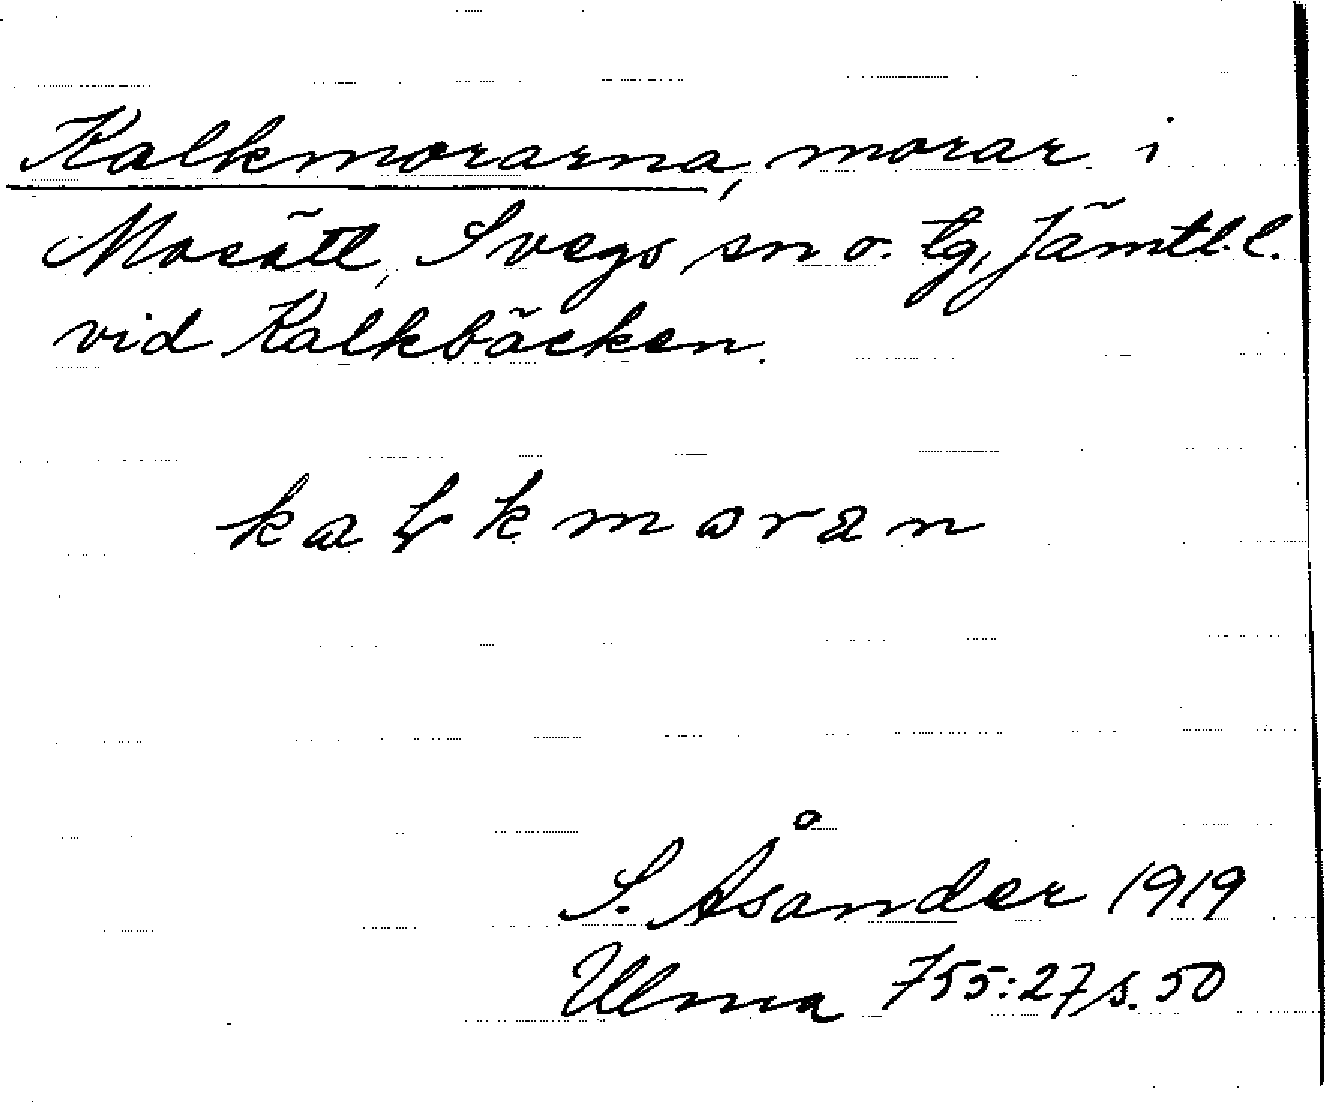 Kalkmorarna, morar i
Mosätt, Svegs sn o. tg, Jämtl. l.
vid Kalkbäcken.
kałkmoran
S. Åsander 1919
Ulma 755:27 s. 50